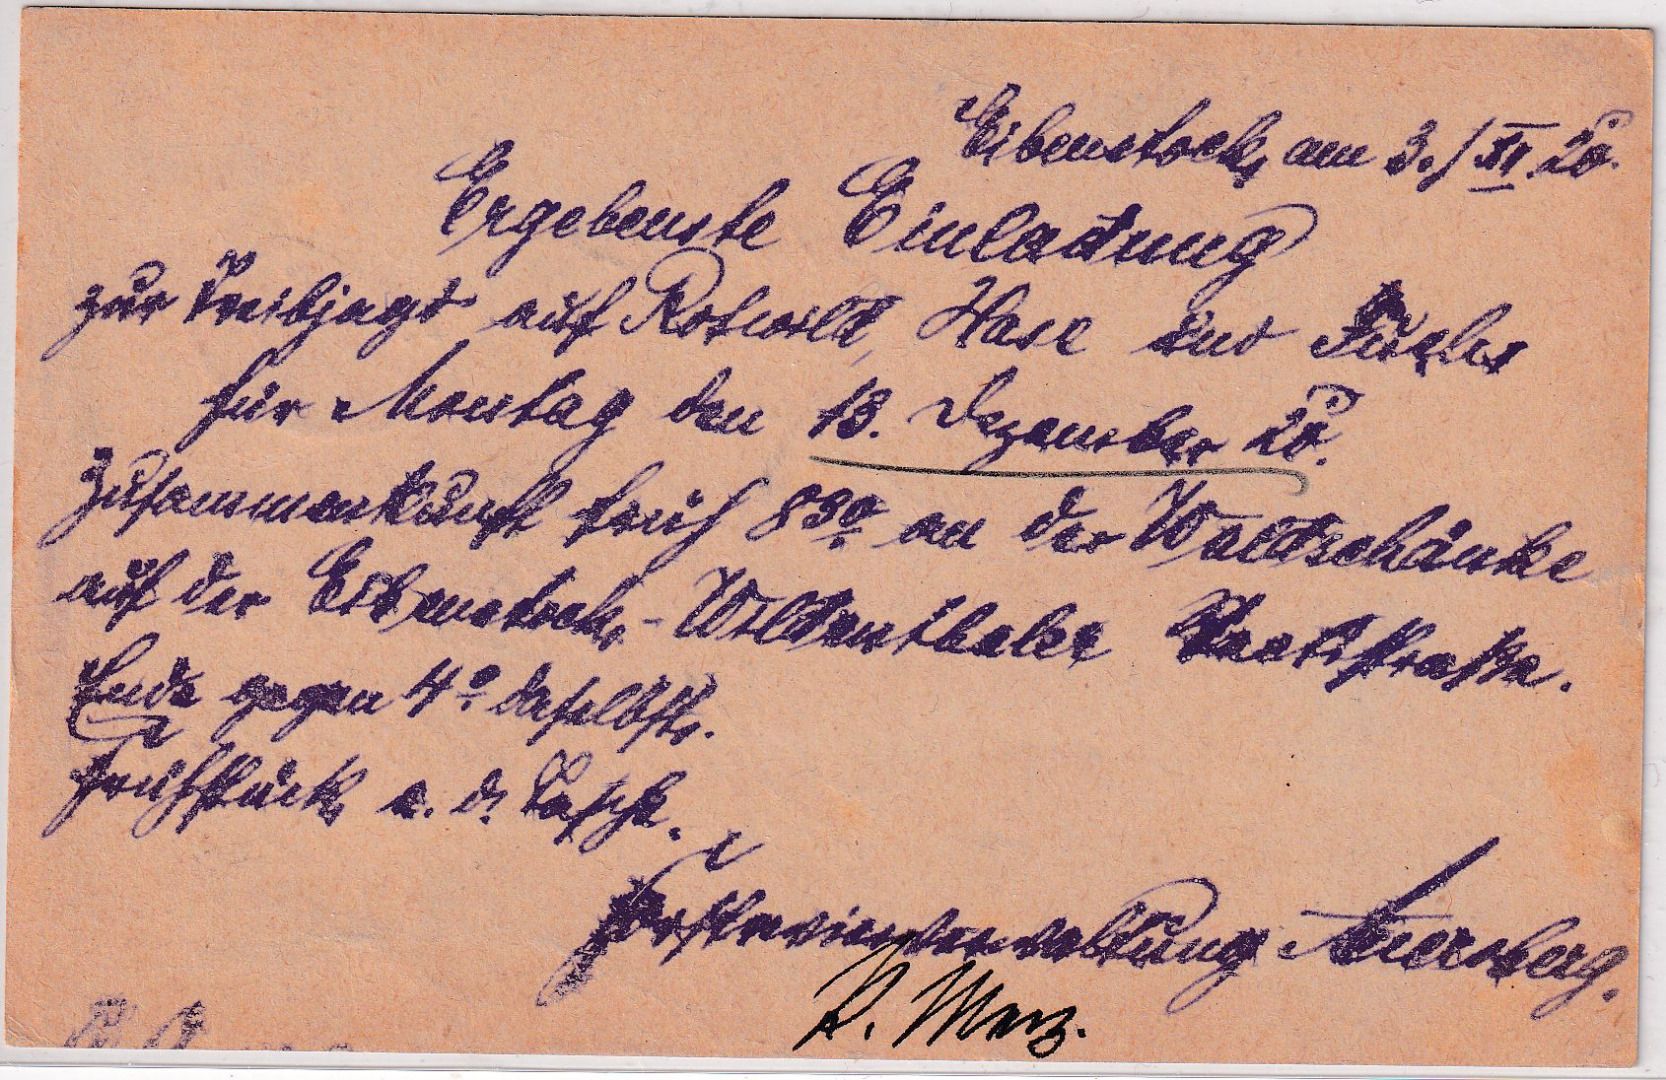 Eibenstock, am 3./XII. 20.
Ergebenste Einladung
zur Treibjagd auf Rotwild, Hase und Fuchs
für Montag den 13. Dezember 20.
Zusammenkunft früh 8³⁰ an der Waldschänke
auf der Eibenstock-Wildenthaler Staatsstraße.
Ende gegen 4⁰ daselbst.
Frühstück a. d. Tasche.
Forstrevierverwaltung Auersberg.
Merz.